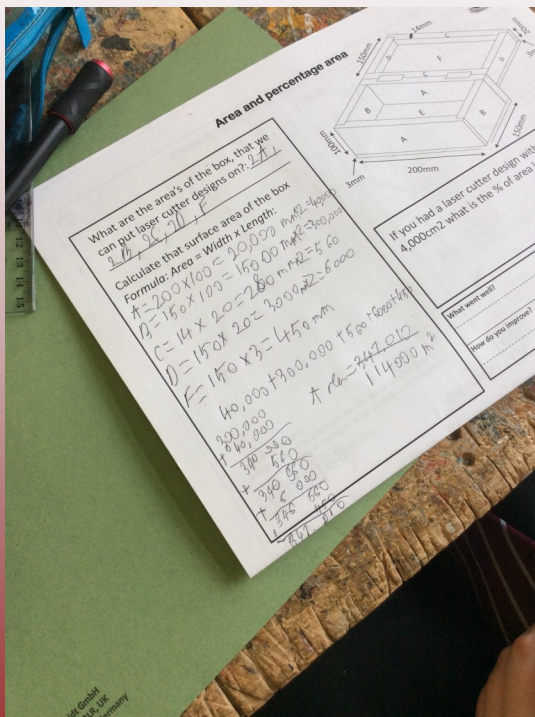 Area and percentage area
What are the area's of the box, that we
can put laser cutter designs on?: 2A,
2B, 2C, 2D, F
Calculate that surface area of the box
Formula: Area = Width x Length:
A=200x100=20,000 mm2=40000
B=150x100=15000 mm2=300,000
C=14 x 20=280 mm2=560
D=150x 20=3000mm2=6000
F=150x3=450mm
40,000+300,000+560+6000+450
Area=347,010
114000 m2
300,000
+ 40,000
340 000
560
+ 340 560
6 000
+ 346 560
450
347 010
150mm
14mm
C
20mm
D
F
D
C
A
B
E
B
A
100mm
3mm
200mm
150mm
If you had a laser cutter design with
4,000cm2 what is the % of area
What went well?
How do you improve?
12 13 14 15
dt GmbH
LR, UK
ermany